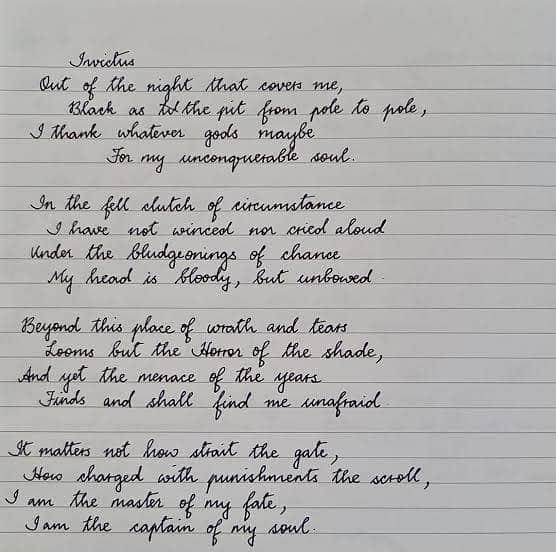 Invictus
Out of the night that covers me,
Black as the pit from pole to pole,
I thank whatever gods maybe
For my unconquerable soul.
In the fell clutch of circumstance
I have not winced nor cried aloud
Under the bludgeonings of chance
My head is bloody, but unbowed.
Beyond this place of wrath and tears
Looms but the Horror of the shade,
And yet the menace of the years
Finds and shall find me unafraid.
It matters not how strait the gate,
How charged with punishments the scroll,
I am the master of my fate,
I am the captain of my soul.